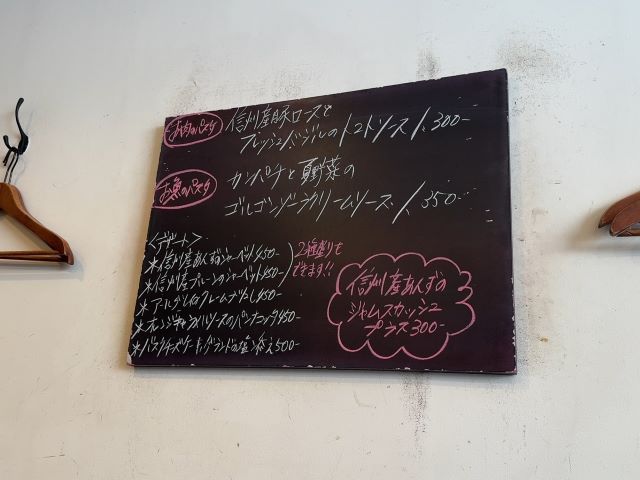 お肉のパスタ 信州産豚ロースと
フレッシュバジルのトマトソース 1,300-
お魚のパスタ カンパチと夏野菜の
ゴルゴンゾーラクリームソース 1,350-
<デザート>
*信州産あんずのシャーベット450-
*信州産プルーンのシャーベット450-
2種盛りも
できます!!
*アールグレイのクレームブリュレ450-
*オレンジキャラメルソースのパンナコッタ450-
*バスクチーズケーキ 塩添え500-
信州産あんずの
ジャムスカッシュ
プラス300-